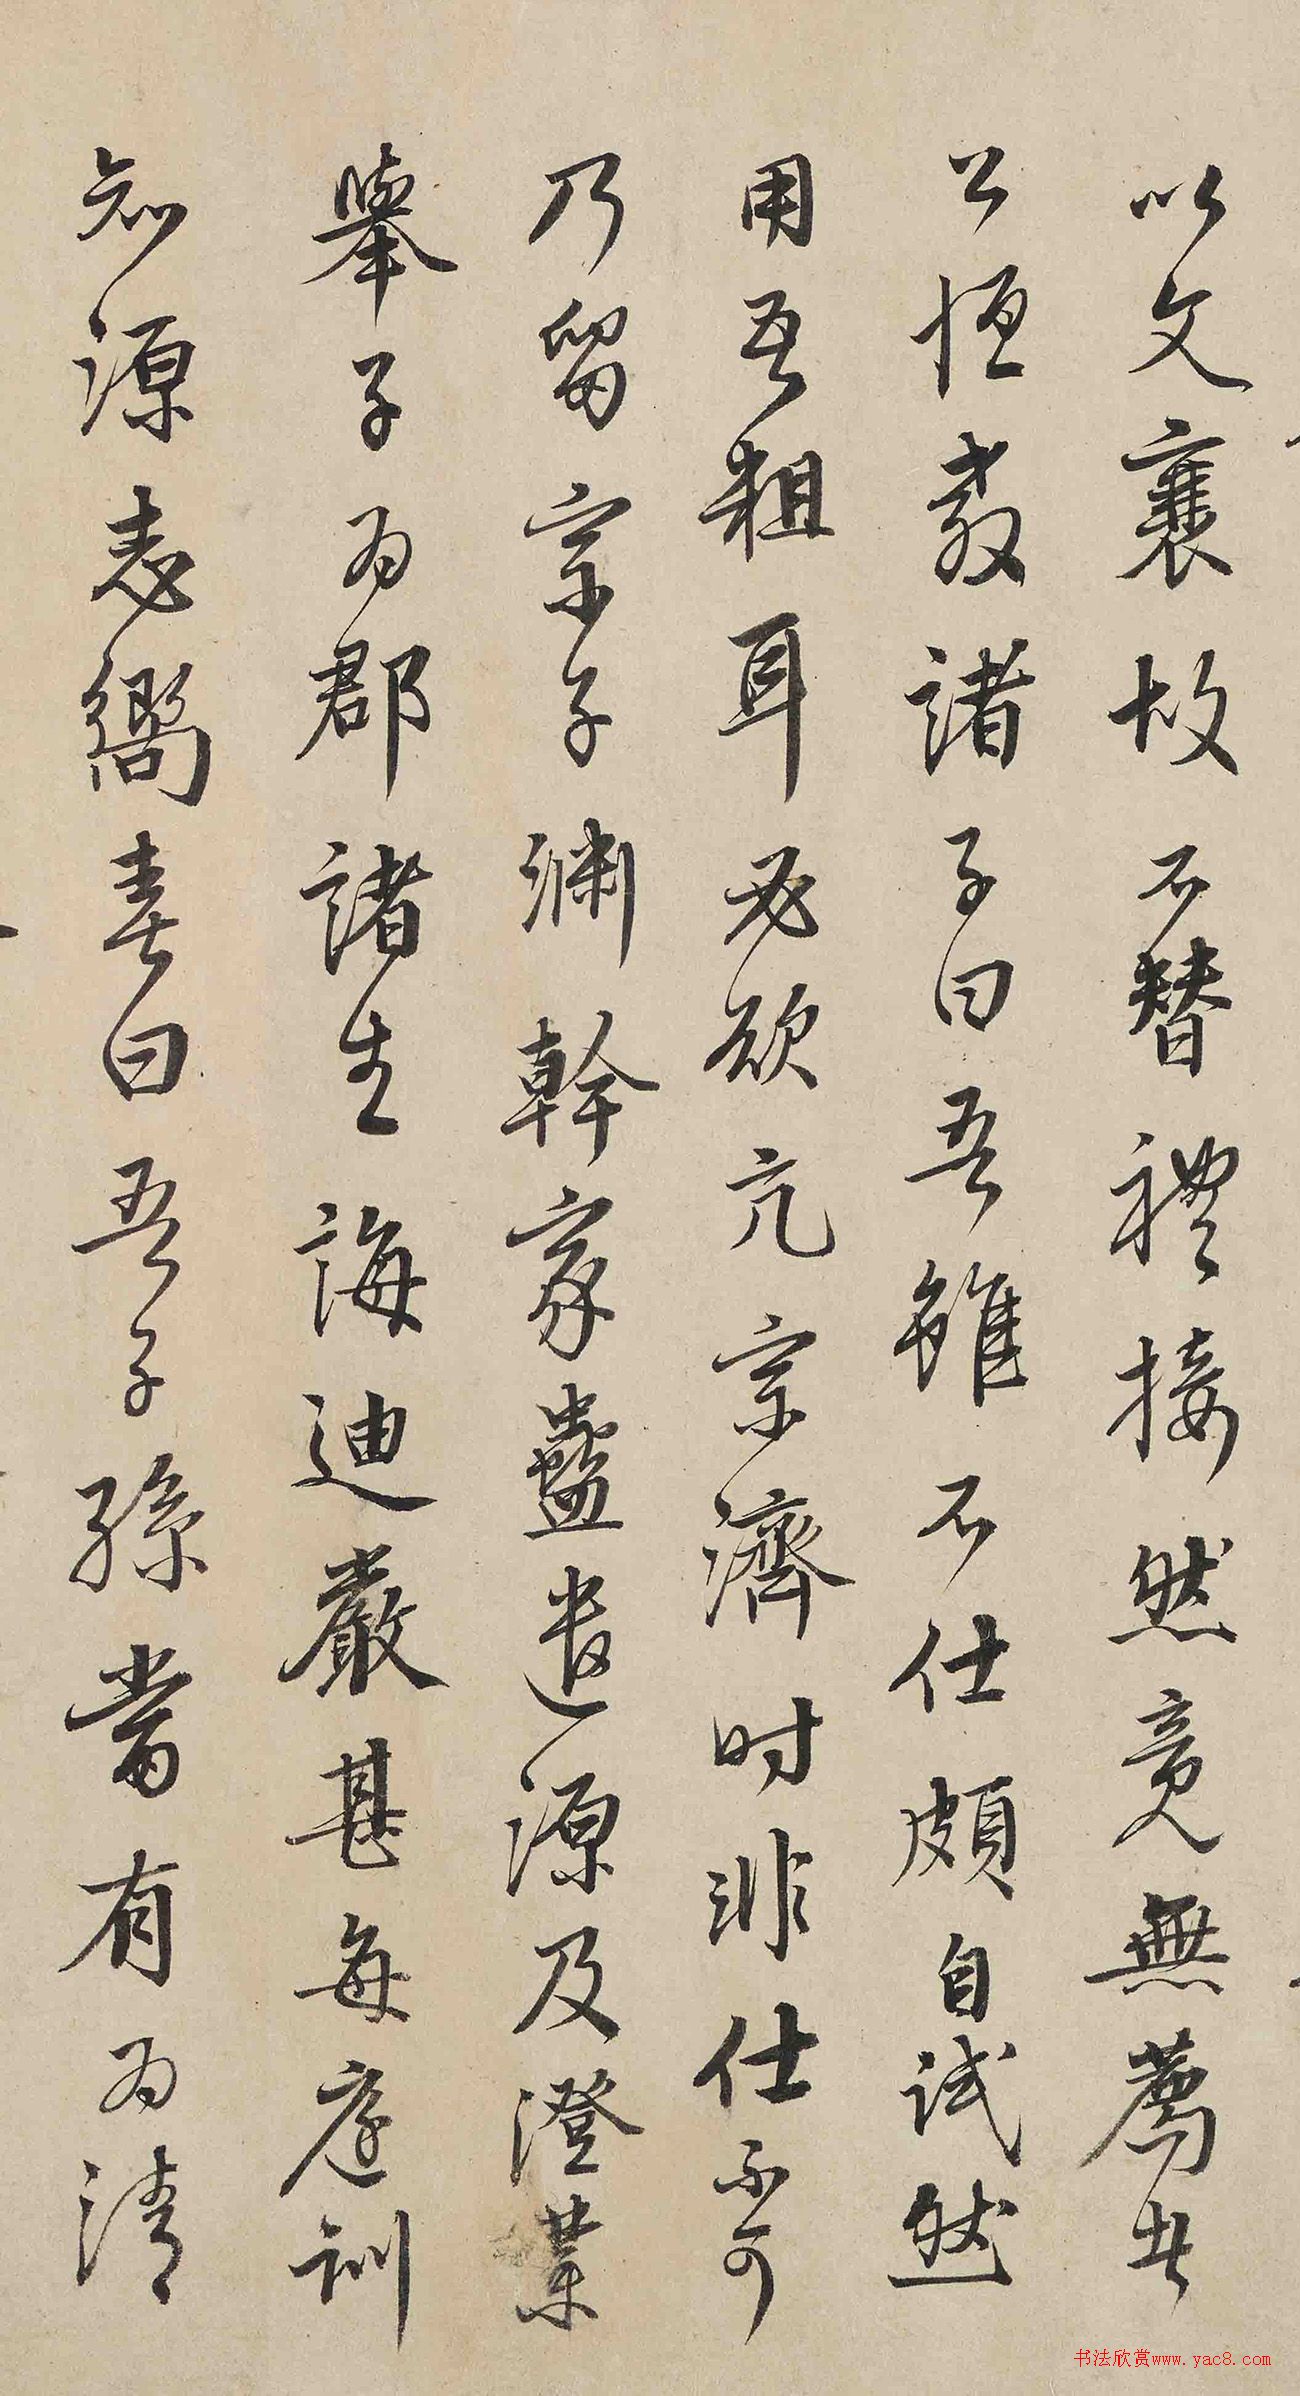 以文襄故不替禮接然竟無薦者
公恒教諸子曰吾雖不仕頗自試然
用吾粗耳必欲亢宗濟时非仕不可
乃留宗子渊幹家蠱遣源及澄業
舉子为郡諸生誨迪嚴甚每庭訓
知源志嚮喜曰吾子孫當有为清
书法欣赏www.yac8.com